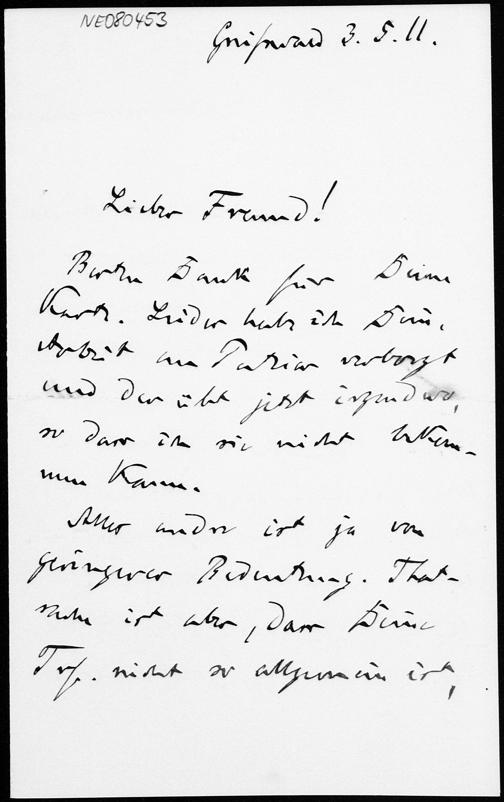 NE080453
Greifswald 3. 5. 11.
Lieber Freund!
Besten Dank für Deine
Karte. Leider habe ich Deine
Arbeit an verborgt
und der übt jetzt irgendwo,
so dass ich sie nicht bekom-
men kann.
Alles andre ist ja von
geringerer Bedeutung. That-
sache ist aber, dass Deine
Trf. nicht so allgemein ist,